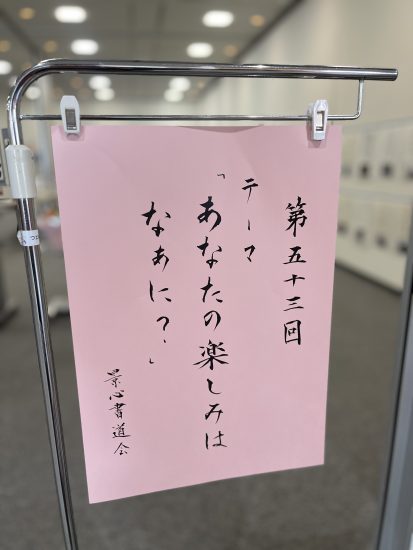 第五十三回
テーマ
「あなたの楽しみは
なぁに？」
景心書道会